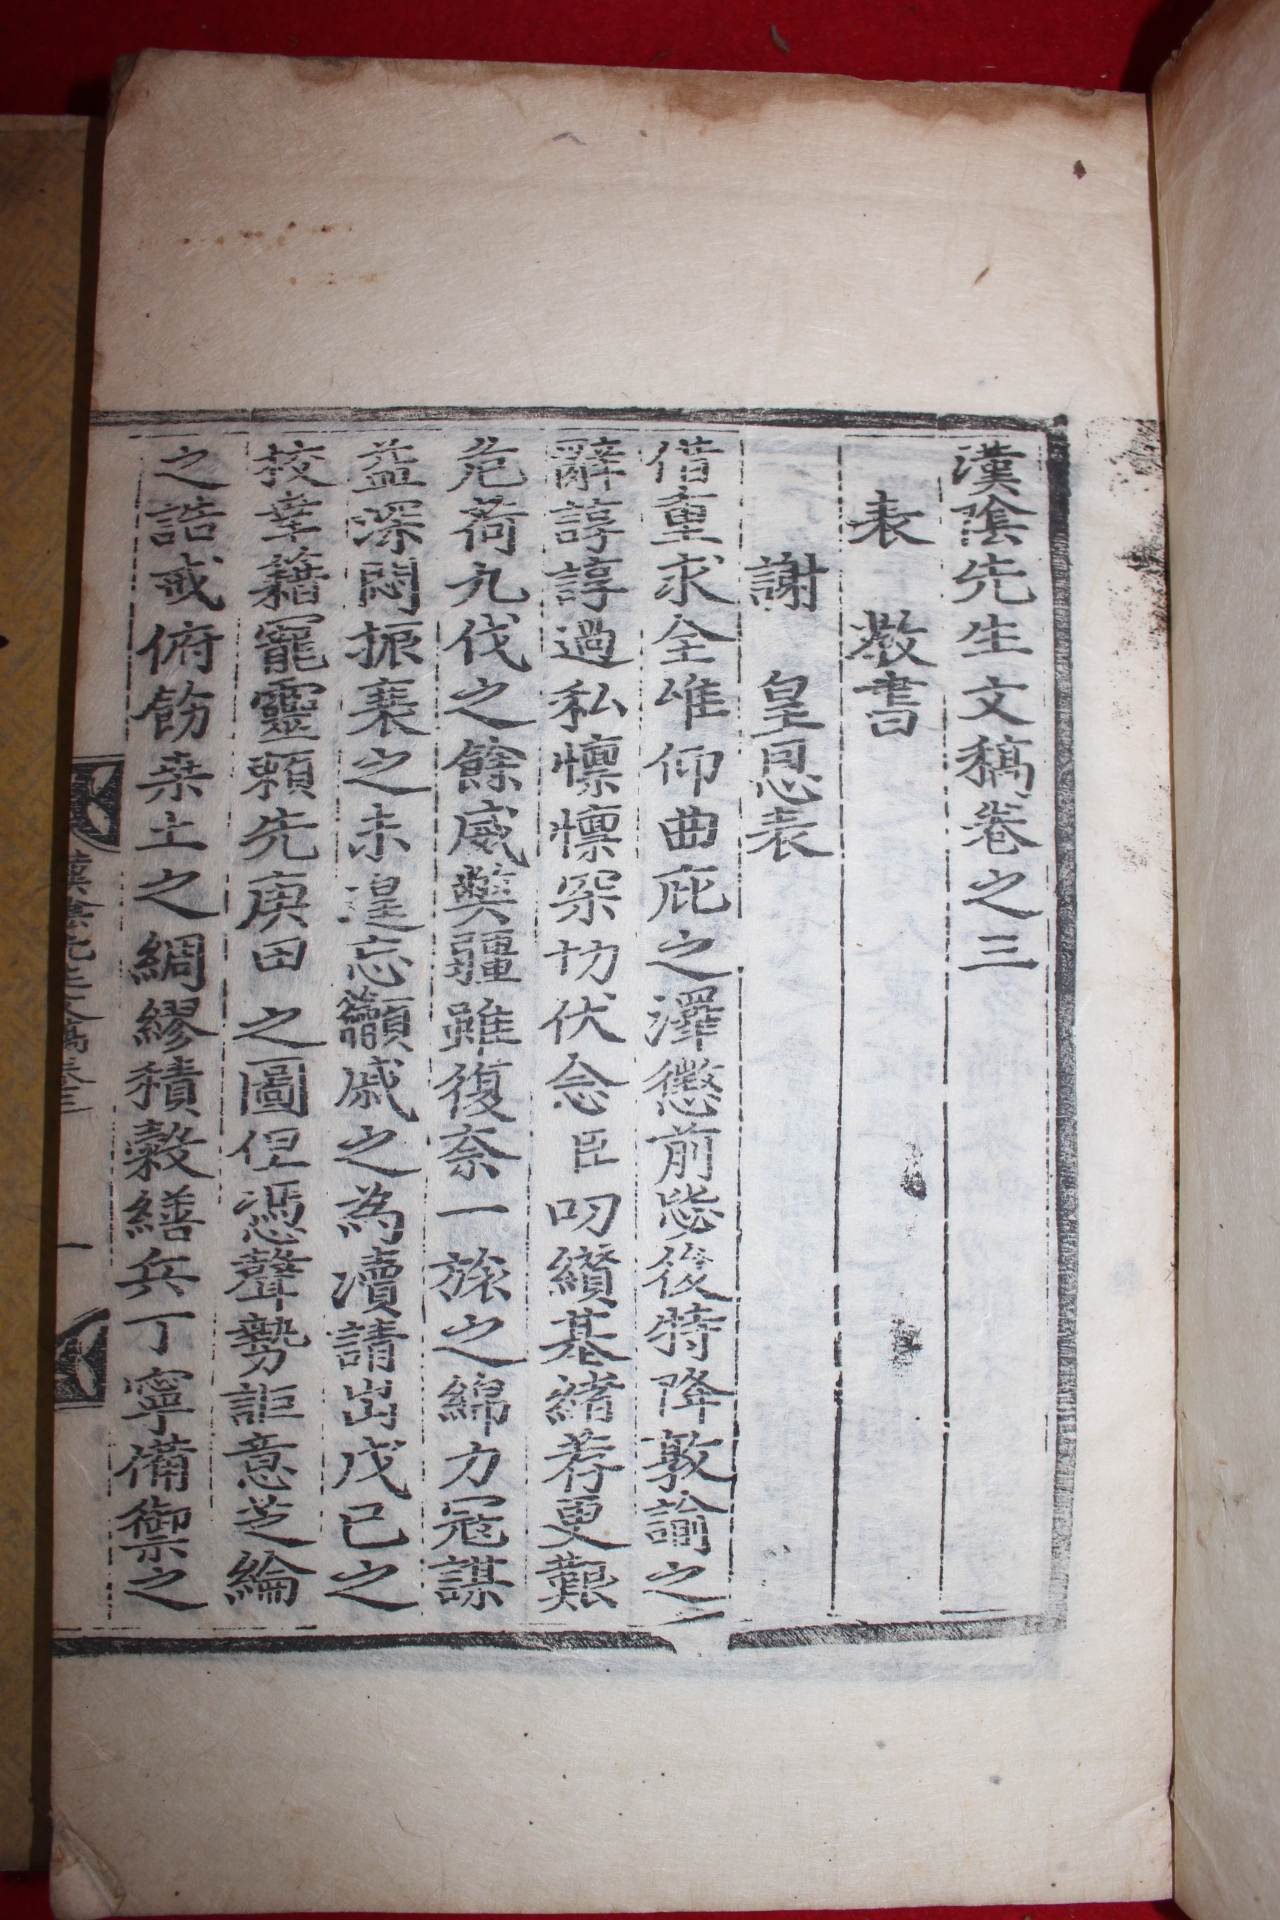 漢陰先生文稿卷之三
表 教書
謝 皇恩表
借重求全唯仰曲庇之澤懲前毖後特降敦諭之
辭諄諄過私懍懍深切伏念臣叨纘基緒荐更艱
危荷九伐之餘威輿疆雖復奈一旅之綿力冦謀
益深悶振裘之未遑忘籲戚之為瀆請出戊己之
校幸藉寵靈賴先庚田之圖但憑聲勢詎意芝綸
之誥戒俯飭桒土之綢繆積糓繕兵丁寧備禦之
漢陰先生文稿卷三 一